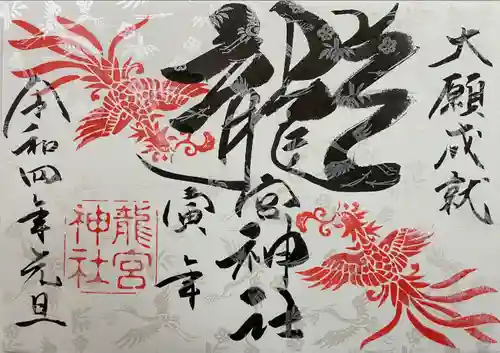 大願成就
龍宮神社
寅年
龍宮
神社
令和四年元旦